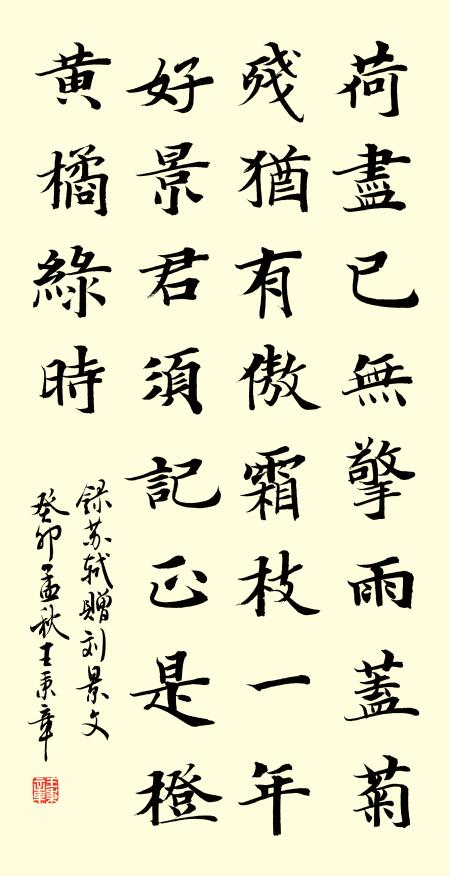 荷盡已無擎雨蓋菊
残猶有傲霜枝一年
好景君須記正是橙
黄橘綠時
録苏軾贈刘景文
癸卯孟秋王秉章